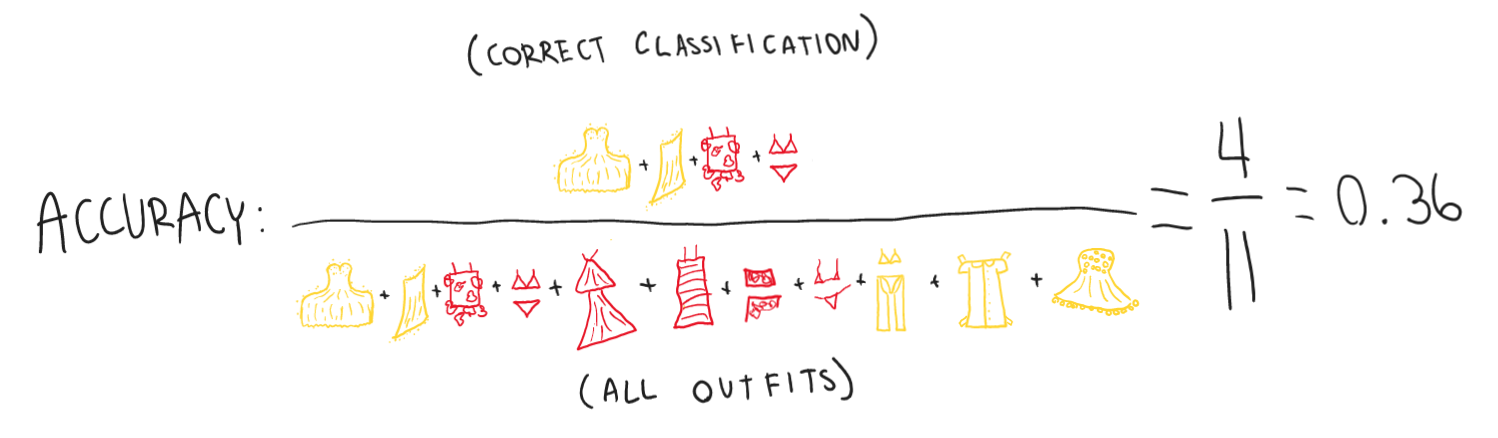 (CORRECT CLASSIFICATION)
+ + +
ACCURACY: = 4/11 = 0.36
+ + + + + + + + + +
(ALL OUTFITS)